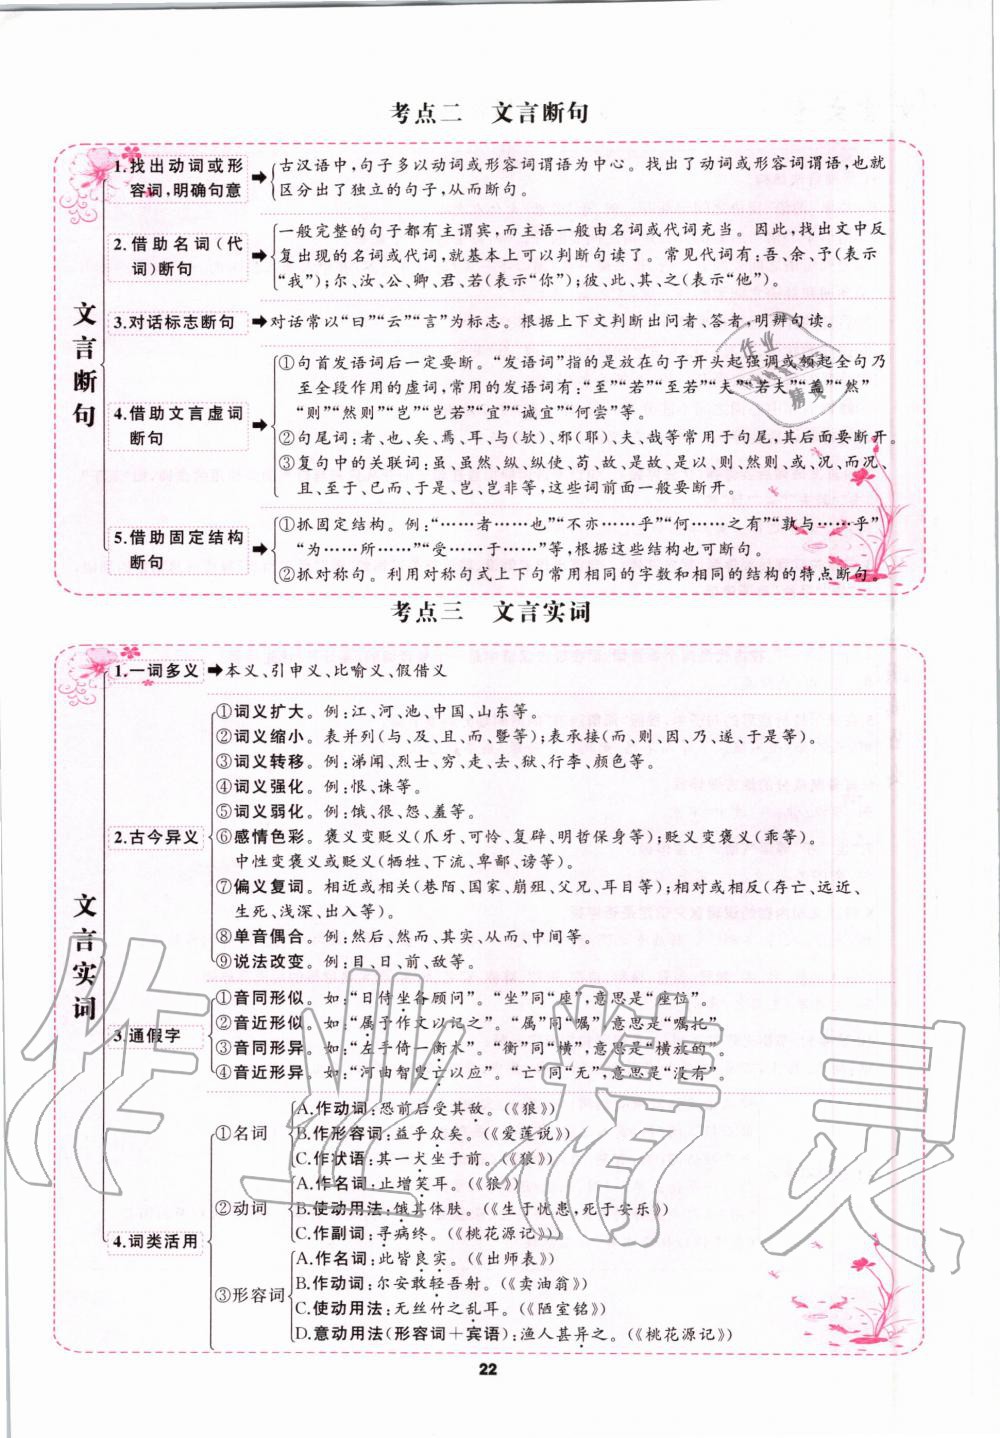 考点二 文言断句
文言断句
1.找出动词或形
容词,明确句意
古汉语中,句子多以动词或形容词谓语为中心。找出了动词或形容词谓语,也就
区分出了独立的句子,从而断句。
2.借助名词(代
词)断句
一般完整的句子都有主谓宾,而主语一般由名词或代词充当。因此,找出文中反
复出现的名词或代词,就基本上可以判断句读了。常见代词有:吾、余、予(表示
“我”);尔、汝、公、卿、君、若(表示“你”);彼、此、其、之(表示“他”)。
3.对话标志断句
对话常以“曰”“云”“言”为标志。根据上下文判断出问者、答者,明辨句读。
4.借助文言虚词
断句
①句首发语词后一定要断。“发语词”指的是放在句子开头起强调或领起全句乃
至全段作用的虚词,常用的发语词有:“至”“若”“至若”“夫”“若夫”“盖”“然”
“则”“然则”“岂”“岂若”“宜”“诚宜”“何尝”等。
②句尾词:者、也、矣、焉、耳、与(欤)、邪(耶)、夫、哉等常用于句尾,其后面要断开。
③复句中的关联词:虽、虽然、纵、纵使、苟、故、是故、是以、则、然则、或、况、而况、
且、至于、已而、于是、岂、岂非等,这些词前面一般要断开。
5.借助固定结构
断句
①抓固定结构。例:“……者……也”“不亦……乎”“何……之有”“孰与……乎”
“为……所……”“受……于……”等,根据这些结构也可断句。
②抓对称句。利用对称句式上下句常用相同的字数和相同的结构的特点断句。
考点三 文言实词
文言实词
1.一词多义
本义、引申义、比喻义、假借义
2.古今异义
①词义扩大。例:江、河、池、中国、山东等。
②词义缩小。表并列(与、及、且、而、暨等);表承接(而、则、因、乃、遂、于是等)。
③词义转移。例:涕闻、烈士、穷、走、去、狱、行李、颜色等。
④词义强化。例:恨、诛等。
⑤词义弱化。例:饿、很、怨、羞等。
⑥感情色彩。褒义变贬义(爪牙、可怜、复辟、明哲保身等);贬义变褒义(乖等)。
中性变褒义或贬义(牺牲、下流、卑鄙、谤等)。
⑦偏义复词。相近或相关(巷陌、国家、崩殂、父兄、耳目等);相对或相反(存亡、远近、
生死、浅深、出入等)。
⑧单音偶合。例:然后、然而、其实、从而、中间等。
⑨说法改变。例:目、日、前、敌等。
3.通假字
①音同形似。如:“日侍坐备顾问”。“坐”同“座”,意思是“座位”。
②音近形似。如:“属予作文以记之”。“属”同“嘱”,意思是“嘱托”。
③音同形异。如:“左手倚一衡木”。“衡”同“横”,意思是“横放的”。
④音近形异。如:“河曲智叟亡以应”。“亡”同“无”,意思是“没有”。
4.词类活用
①名词
A.作动词:恐前后受其敌。(《狼》)
B.作形容词:益乎众矣。(《爱莲说》)
C.作状语:其一犬坐于前。(《狼》)
②动词
A.作名词:止增笑耳。(《狼》)
B.使动用法:饿其体肤。(《生于忧患,死于安乐》)
C.作副词:寻病终。(《桃花源记》)
③形容词
A.作名词:此皆良实。(《出师表》)
B.作动词:尔安敢轻吾射。(《卖油翁》)
C.使动用法:无丝竹之乱耳。(《陋室铭》)
D.意动用法(形容词+宾语):渔人甚异之。(《桃花源记》)
22
作业精灵